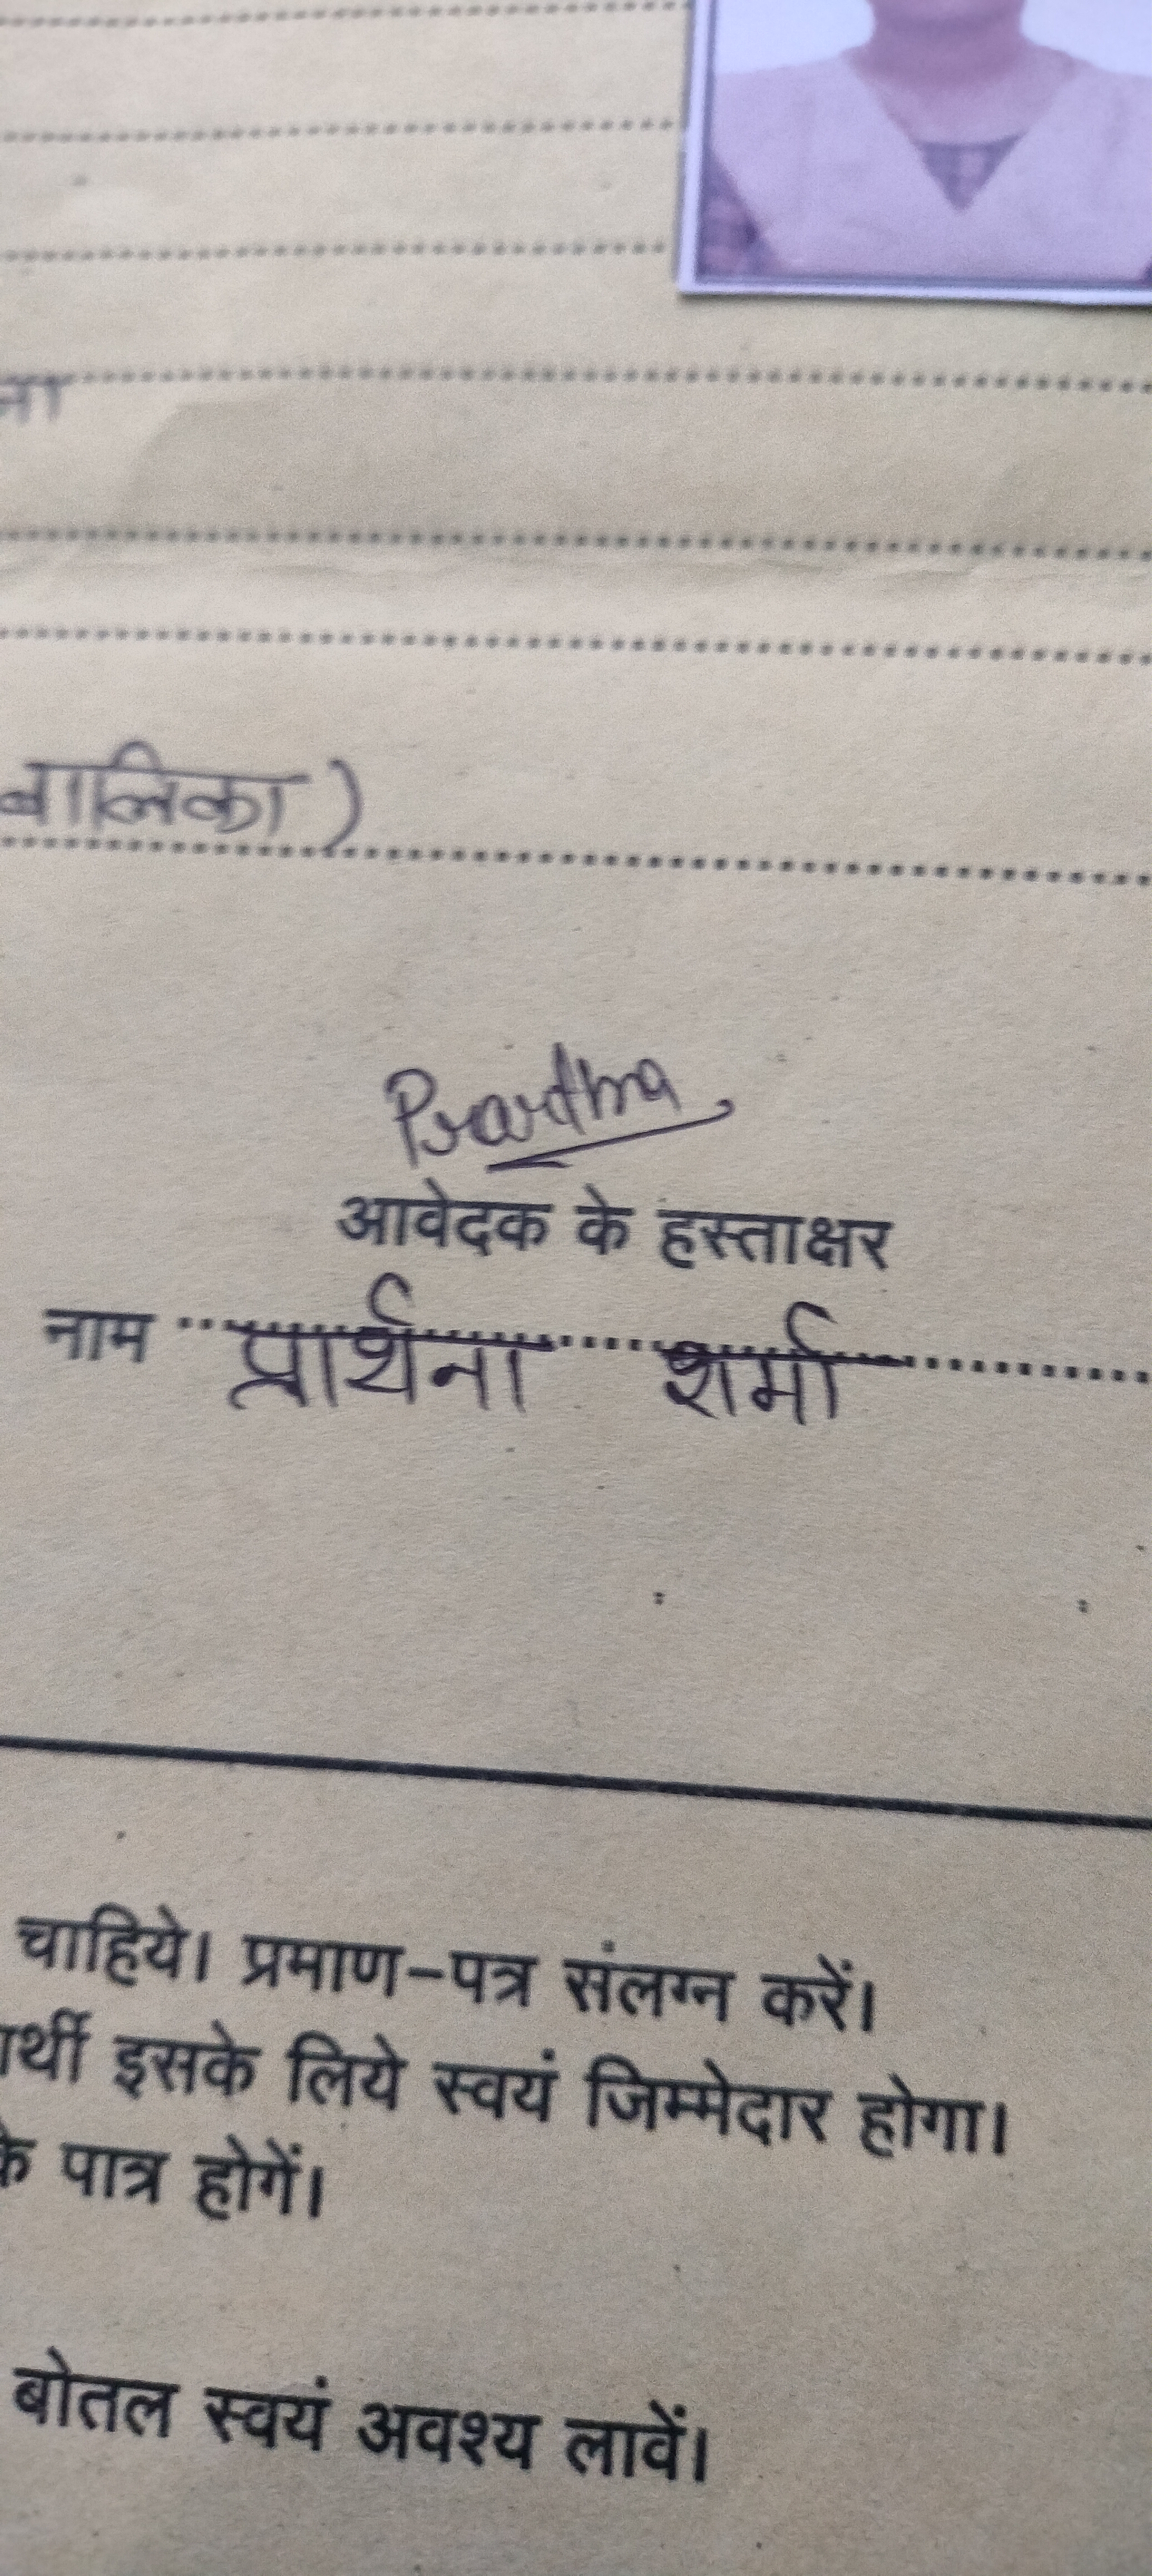 ना
बालिका )
Prarthna
आवेदक के हस्ताक्षर
नाम प्रार्थना शर्मा
चाहिये। प्रमाण-पत्र संलग्न करें।
ार्थी इसके लिये स्वयं जिम्मेदार होगा।
के पात्र होगें।
बोतल स्वयं अवश्य लावें।